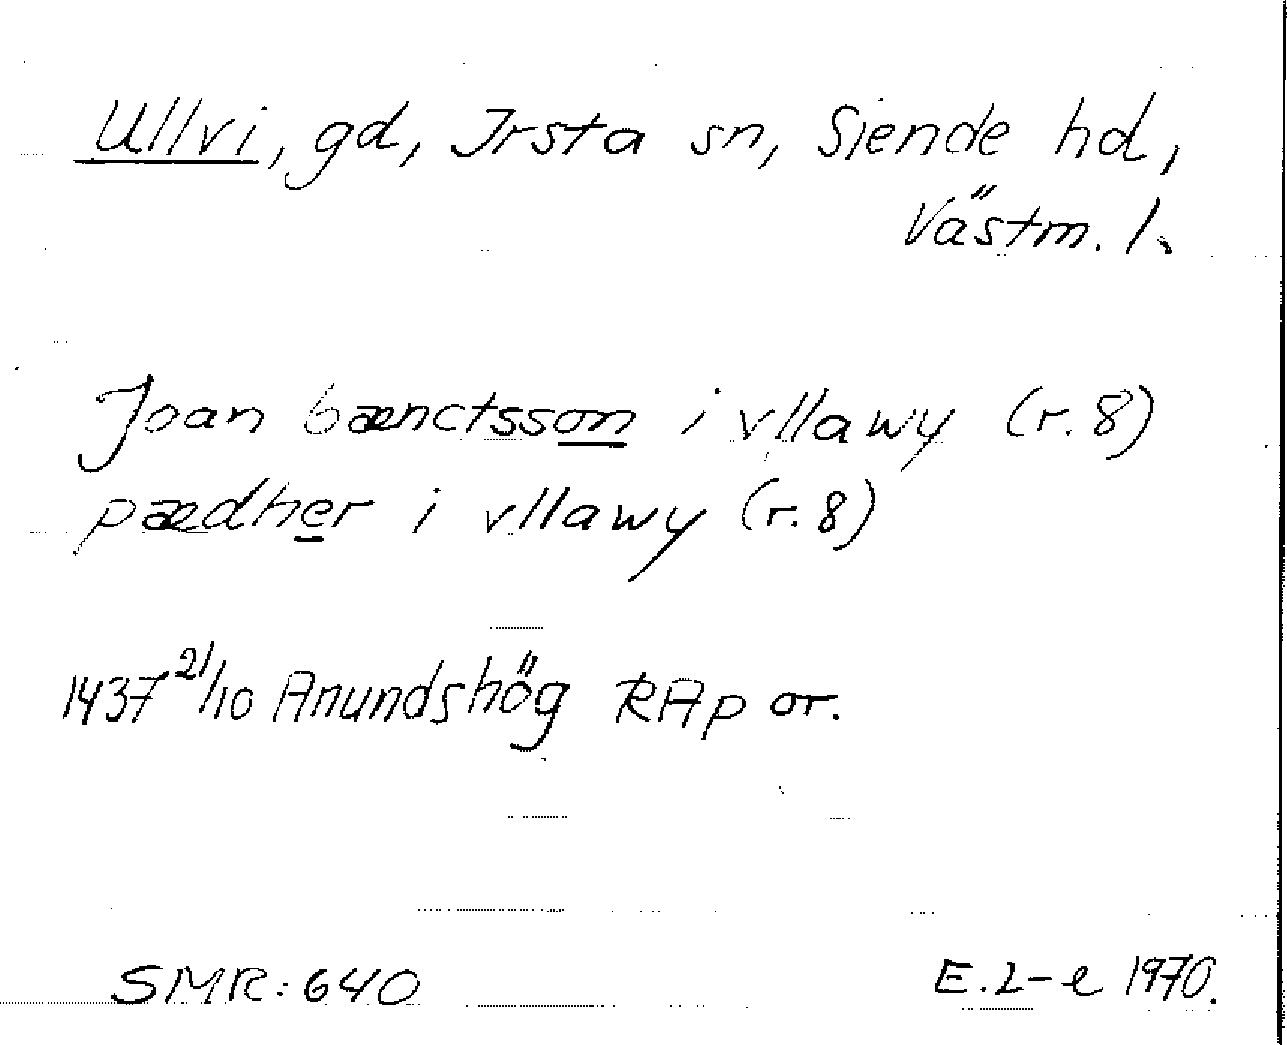 Ullvi, gd, Irsta sn, Siende hd,
Västm. l.
Joan bænctsson i vllawy (r. 8)
pædher i vllawy (r. 8)
1437 21/10 Anundshög RAp or.
SMR: 640
E. L-e 1970.